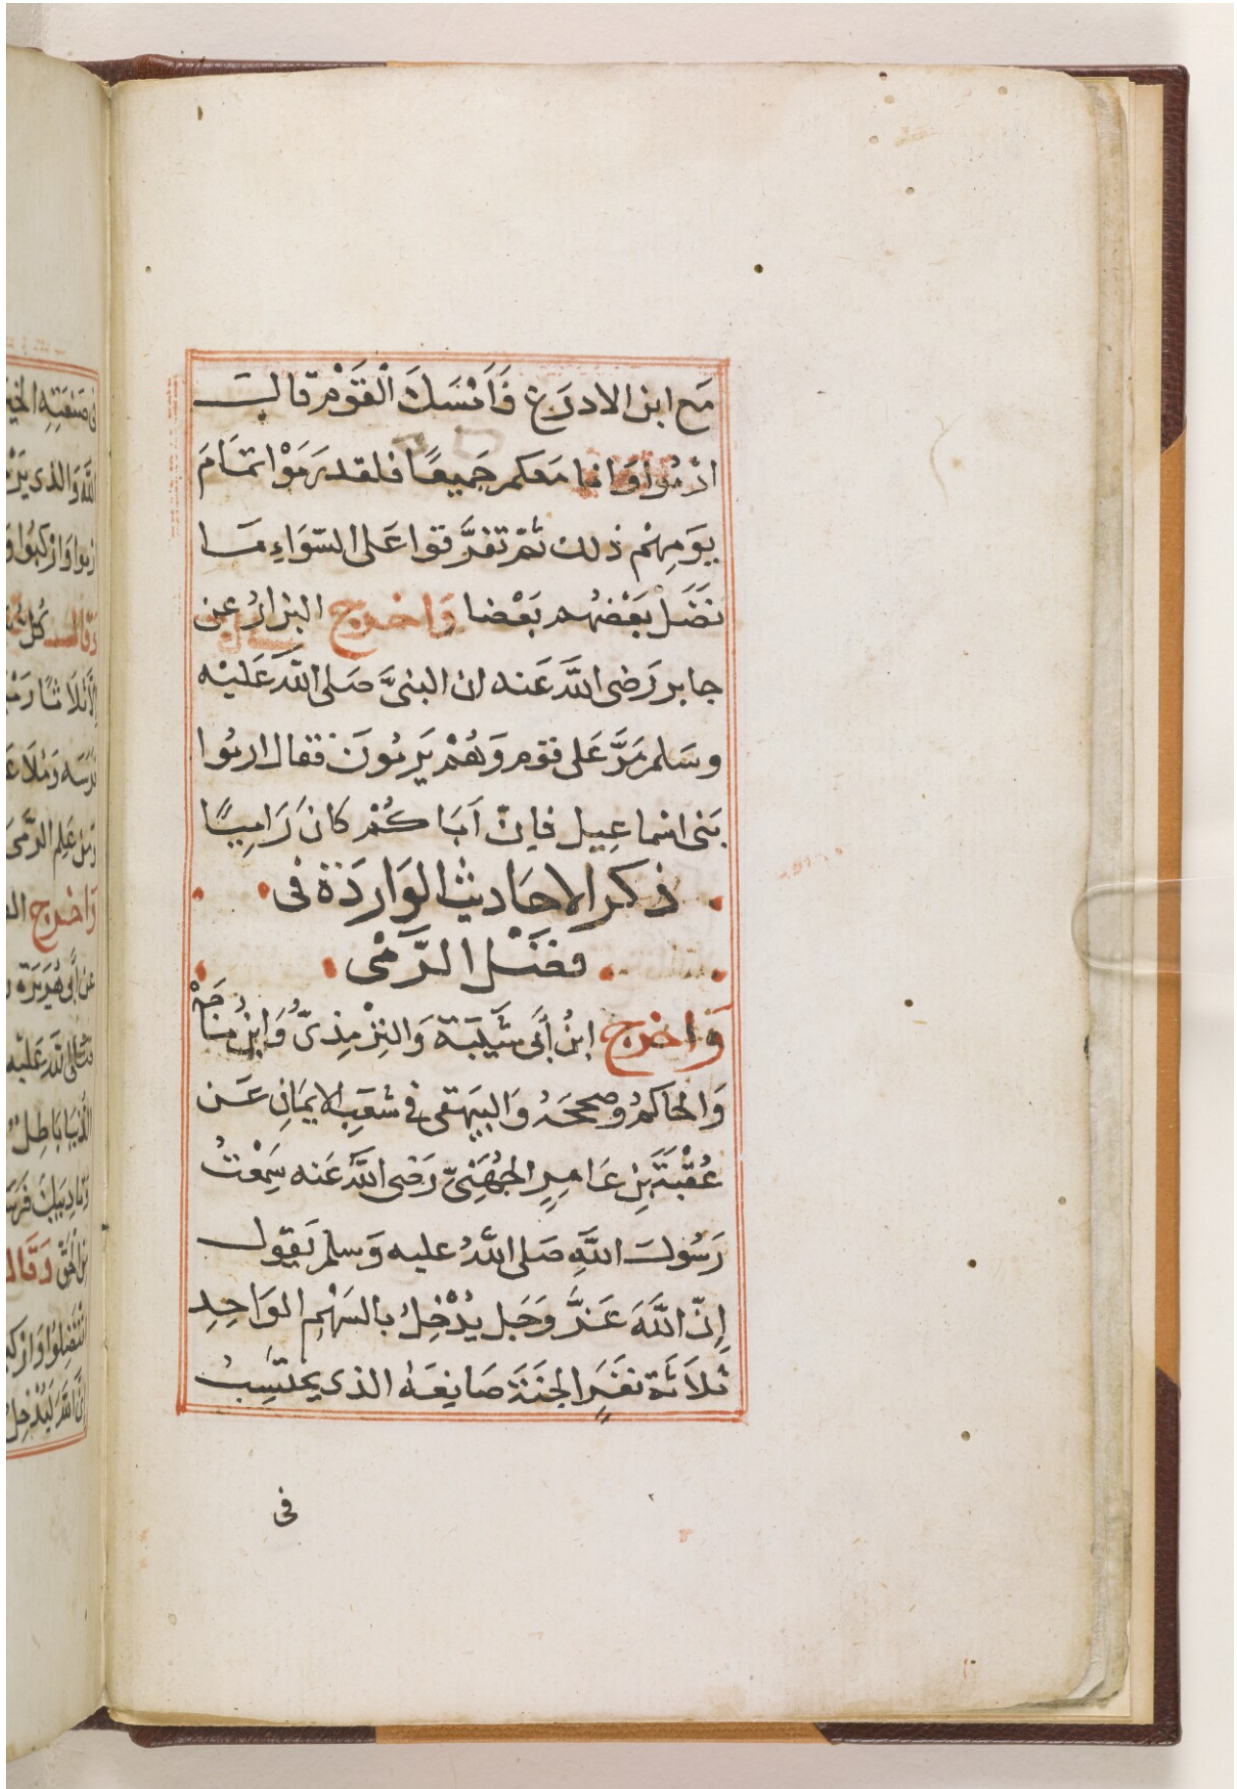 مَع ابن الادرَع فَاَمْسَكَ الْقَوْم قالَ
ارْمُوا وَانا مَعكم جَميعًا فلقد رَمَوْا تمَامَ
يوَمِهْم ذلك ثم تفرَّقوا عَلى السّوَاءِ مَا
نضَل بَعْضهُم بَعْضا وَاخرج البزارُ عن
جابر رَضى اللَّه عَنه ان النبىَّ صَلى اللَّه عَليْه
وسَلم مَرَّ عَلى قوَم وَهُمْ يَرمُونَ فقال ارمُوا
بَنى اسْماعِيل فاِنّ اَبَا كُمْ كانَ رَامِيًا
ذكر الاحَاديث الوَاردَة فى
فضَل الرَّمْى
وَاخرج ابنُ أبى شَيْبَة وَالتِرْمِذىّ وَابنُ مَاجَهْ
وَالحاكمُ وصححَهُ وَالبيَهقى فى شعَبِ الايمَانِ عَن
عُقْبَةَ بنِ عَامِرٍ الجُهَنِىّ رَضى اللَّه عَنه سَمِعْتُ
رَسُولَ اللَّهِ صَلى اللَّهُ عليه وَسلم يَقول
اِنّ اللَّهَ عَزَّ وَجَل يُدْخِلُ بالسَهْمِ الوَاحِدِ
ثلاَثَة نفَرٍ الجَنَةَ صَانِعَهُ الذى يحْتَسِبُ
فى